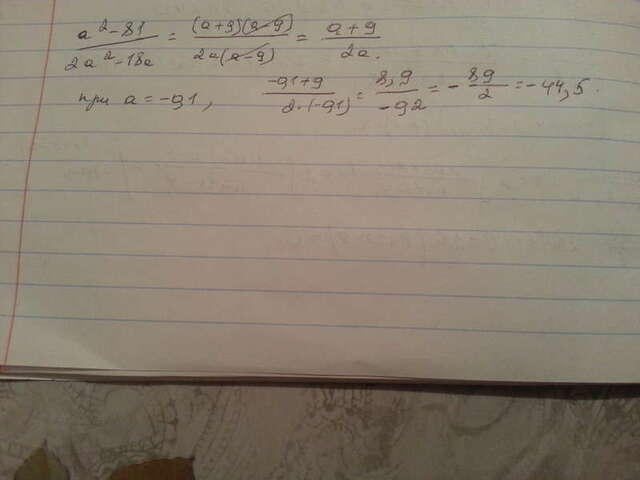 a²-81 / 2a²-18a = (a+9)(a-9) / 2a(a-9) = a+9 / 2a.
при a = -0,1, -0,1+9 / 2·(-0,1) = 8,9 / -0,2 = - 89 / 2 = -44,5.